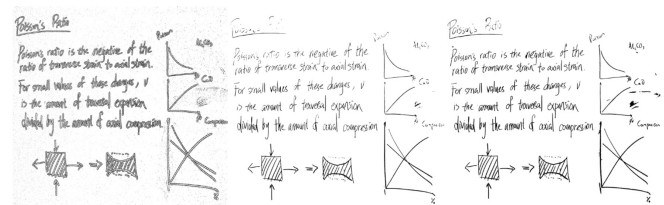 Poisson's Ratio
Poisson's ratio is the negative of the
ratio of transverse strain to axial strain.
For small values of these changes, ν
is the amount of transversal expansion
divided by the amount of axial compression
Poisson's ratio is the negative of the
ratio of transverse strain to axial strain.
For small values of these changes, ν
is the amount of transversal expansion
divided by the amount of axial compression
CaO
Poisson's Ratio
Poisson's ratio is the negative of the
ratio of transverse strain to axial strain.
For small values of these changes, ν
is the amount of transversal expansion
divided by the amount of axial compression
CaO